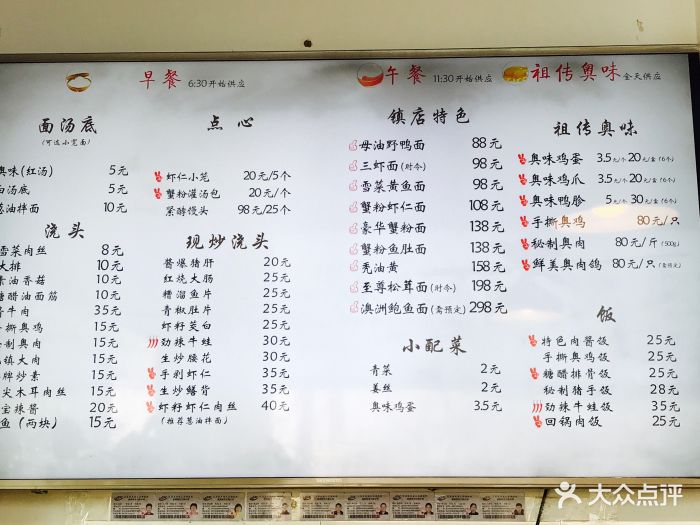 早餐 6:30开始供应
面汤底
(可选小宽面)
奥味(红汤) 5元
白汤底 5元
葱油拌面 10元
浇头
雪菜肉丝 8元
大排 10元
素油香菇 10元
糖醋油面筋 10元
牛肉 35元
手撕奥鸡 15元
秘制奥肉 15元
镇大肉 15元
牌炒素 15元
尖木耳肉丝 15元
宝辣酱 20元
鱼(两块) 15元
点心
虾仁小笼 20元/5个
蟹粉灌汤包 20元/个
紧酵馒头 98元/25个
现炒浇头
酱爆猪肝 20元
红烧大肠 25元
糟溜鱼片 25元
青椒肚片 25元
虾籽茭白 25元
劲辣牛蛙 30元
生炒腰花 30元
手剥虾仁 35元
生炒鳝背 35元
虾籽虾仁肉丝 40元
(推荐葱油拌面)
午餐 11:30开始供应
镇店特色
母油野鸭面 88元
三虾面(时令) 98元
雪菜黄鱼面 98元
蟹粉虾仁面 108元
豪华蟹粉面 138元
蟹粉鱼肚面 138元
秃油黄 158元
至尊松茸面(时令) 198元
澳洲鲍鱼面(需预定) 298元
小配菜
青菜 2元
姜丝 2元
奥味鸡蛋 3.5元
祖传奥味 全天供应
祖传奥味
奥味鸡蛋 3.5元/个 20元/盒(6个)
奥味鸡爪 3.5元/个 20元/盒(6个)
奥味鸭胗 5元/个 30元/盒(6个)
手撕奥鸡 80元/只
秘制奥肉 80元/斤(500g)
鲜美奥肉鸽 80元/只(需预定)
饭
特色肉酱饭 25元
手撕奥鸡饭 25元
糖醋排骨饭 25元
秘制猪手饭 28元
劲辣牛蛙饭 35元
回锅肉饭 25元
大众点评